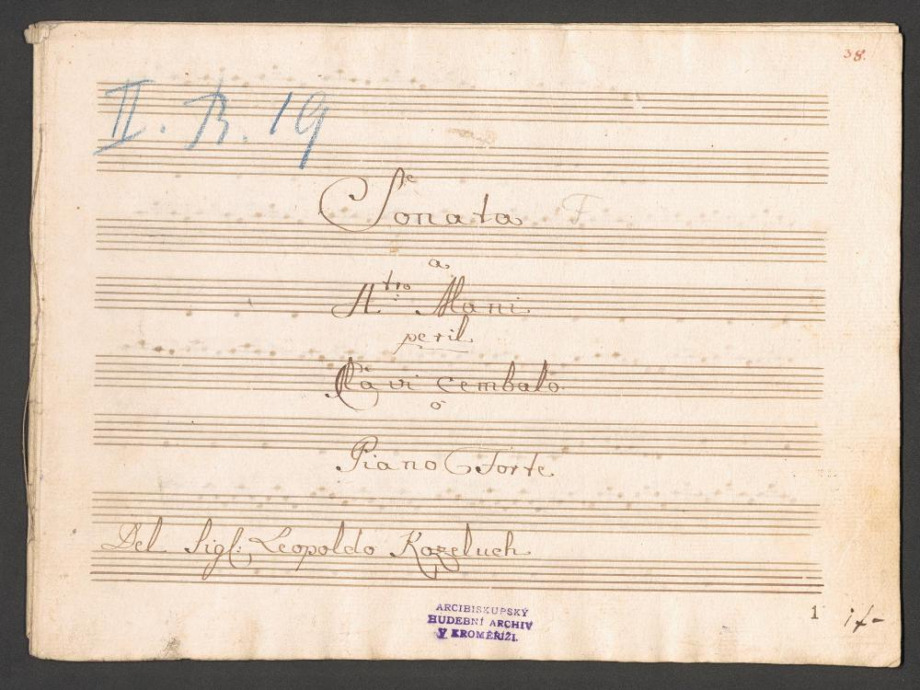 38.
II. B. 19
Sonata F
a
4tro Mani
per il
Clavi cembalo.
o
Piano Forte
Del Sigl: Leopoldo Kozeluch
ARCIBISKUPSKÝ
HUDEBNÍ ARCHIV
V KROMĚŘÍŽI.
1